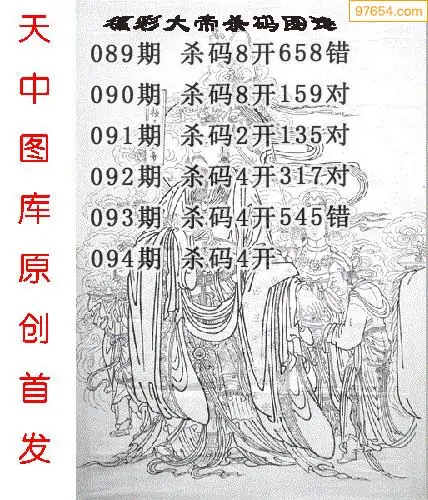 97654.com
福彩大帝杀码图迷
089期 杀码8开658错
090期 杀码8开159对
091期 杀码2开135对
092期 杀码4开317对
093期 杀码4开545错
094期 杀码4开
天中图库原创首发